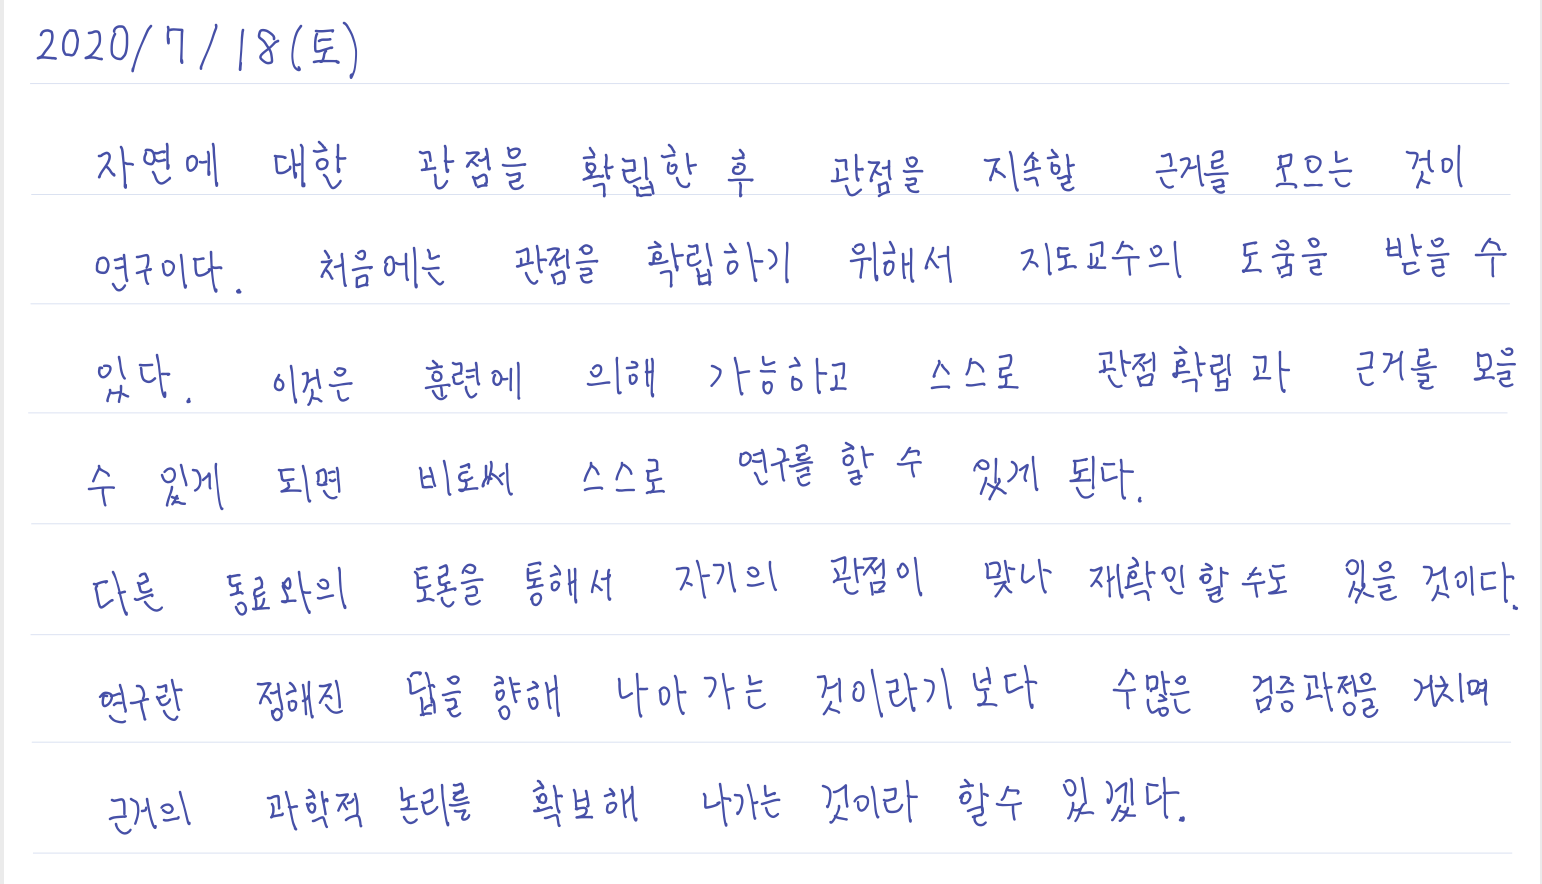 2020/7/18(토)
자연에 대한 관점을 확립한 후 관점을 지속할 근거를 모으는 것이
연구이다. 처음에는 관점을 확립하기 위해서 지도교수의 도움을 받을 수
있다. 이것은 훈련에 의해 가능하고 스스로 관점 확립과 근거를 모을
수 있게 되면 비로써 스스로 연구를 할 수 있게 된다.
다른 동료와의 토론을 통해서 자기의 관점이 맞나 재확인 할 수도 있을 것이다.
연구란 정해진 답을 향해 나아가는 것이라기 보다 수많은 검증과정을 거치며
근거의 과학적 논리를 확보해 나가는 것이라 할 수 있겠다.